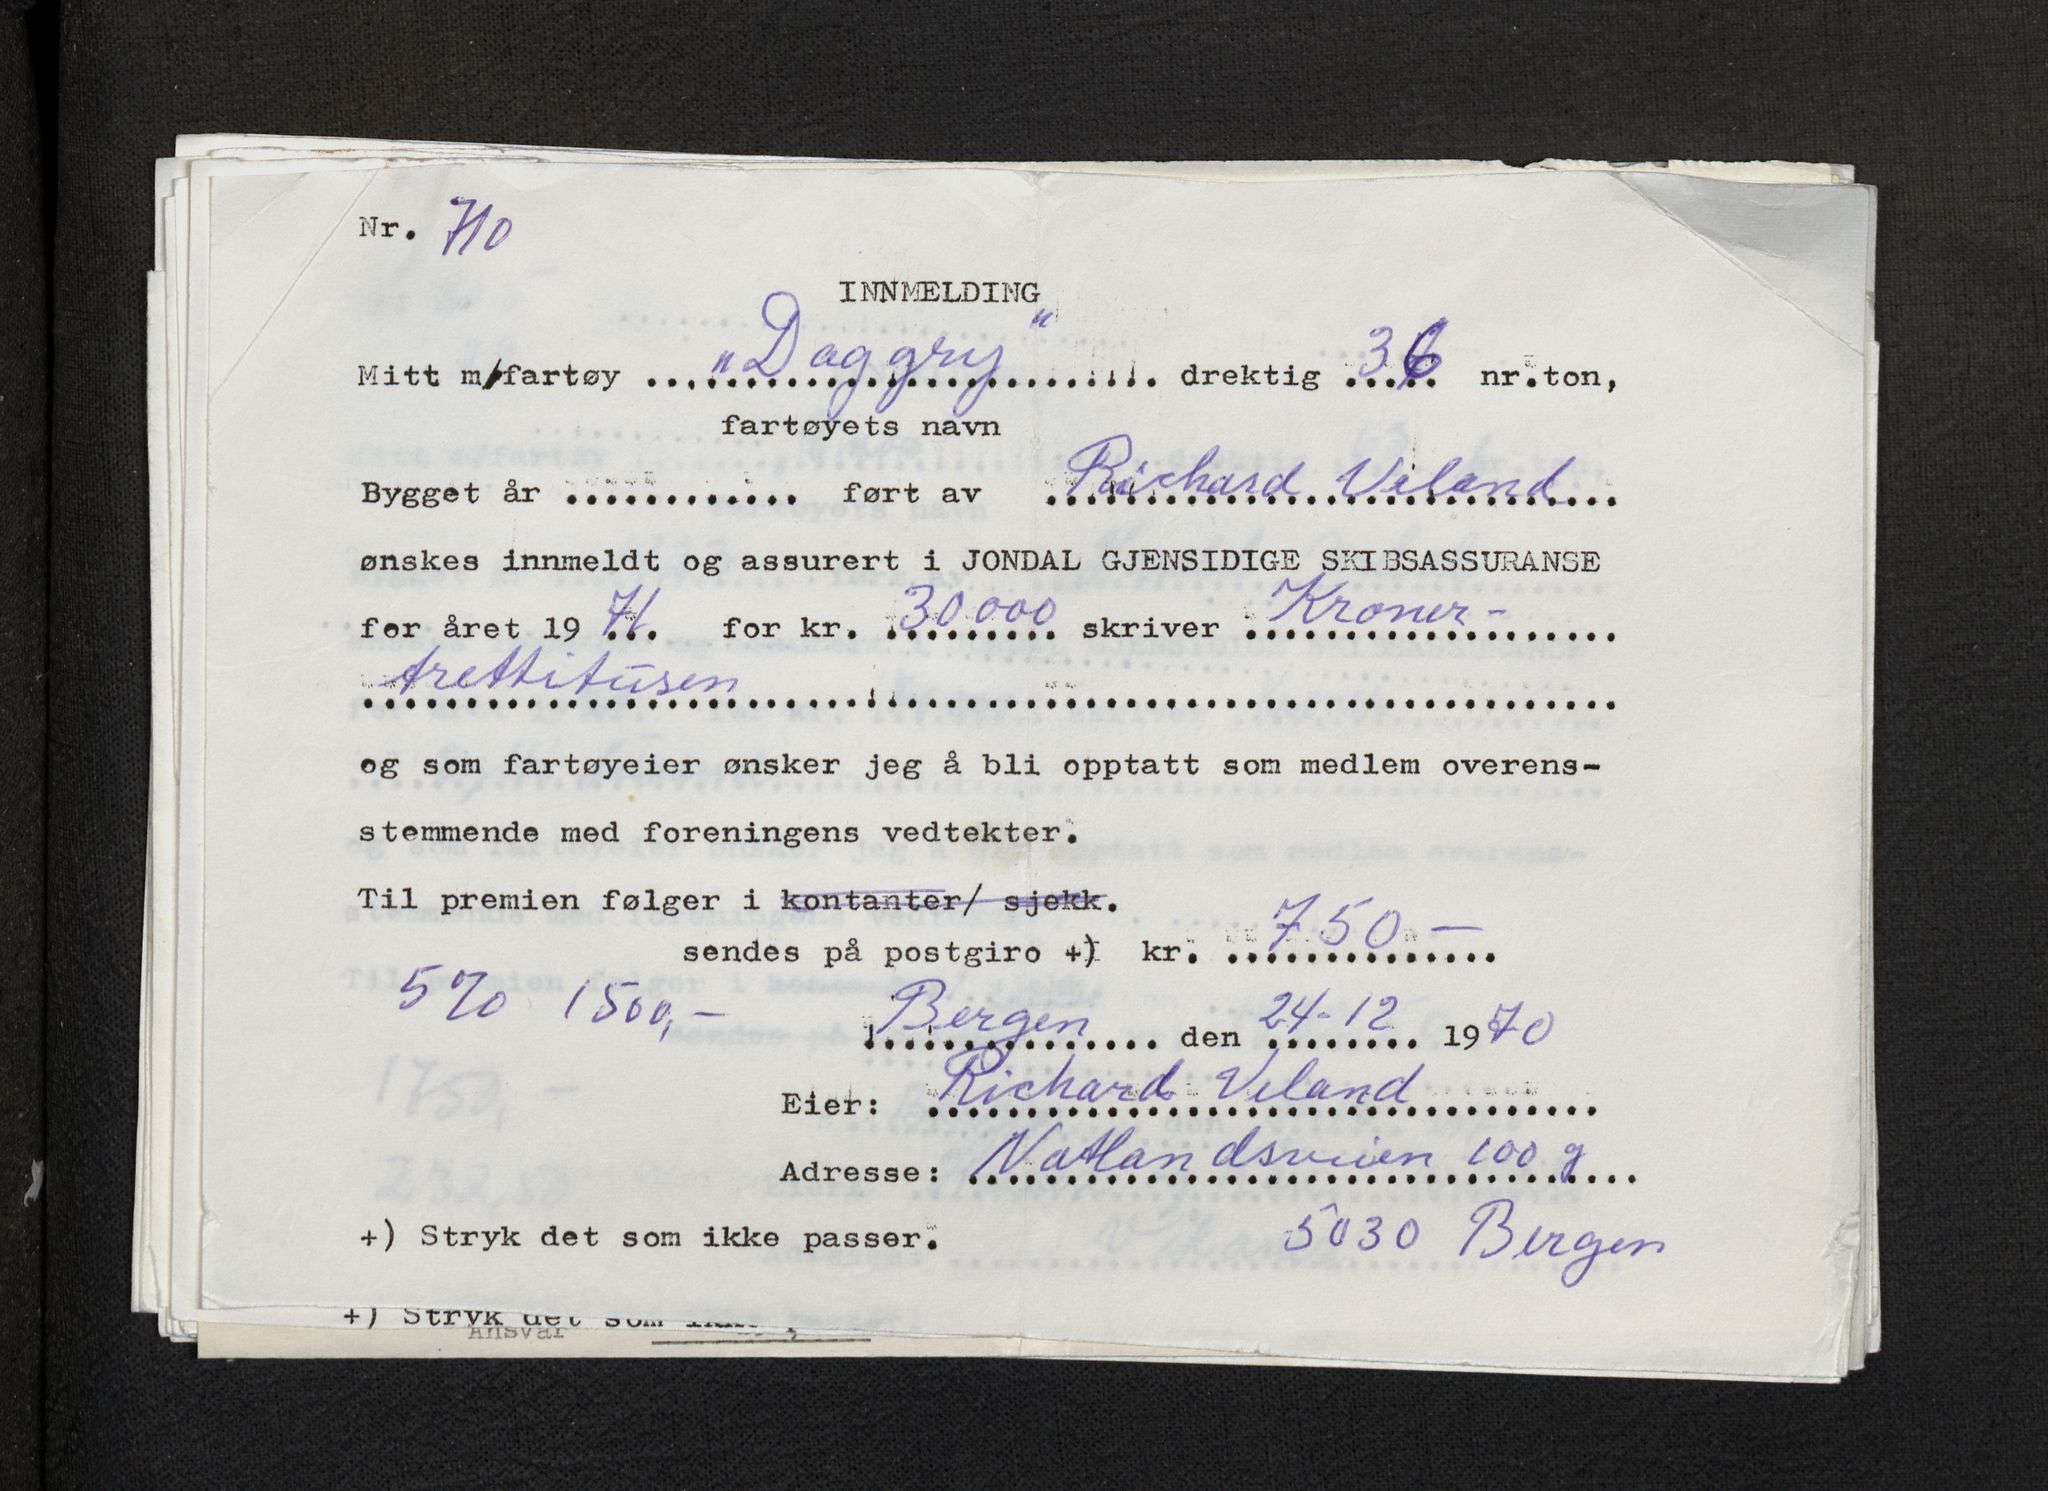 Nr. 710
INNMELDING
Mitt m/fartøy „Daggry" drektig 36 nr.ton,
fartøyets navn
Bygget år ............ ført av Richard Veland
ønskes innmeldt og assurert i JONDAL GJENSIDIGE SKIBSASSURANSE
for året 1971. for kr. 30000 skriver Kroner-
trettitusen
og som fartøyeier ønsker jeg å bli opptatt som medlem overens-
stemmende med foreningens vedtekter.
Til premien følger i kontanter/ sjekk.
sendes på postgiro +) kr. 750 —
5% 1500,—
Bergen den 24-12 1970
Eier: Richard Veland
Adresse: Natlandsveien 100 g
+) Stryk det som ikke passer. 5030 Bergen
+) Stryk det som ikke
Ansvar